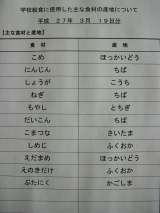 学校給食に使用した主な食材の産地について
平成 27年 3月 19日分
【主な食材と産地】
食材 産地
こめ ほっかいどう
にんじん ちば
しょうが こうち
ねぎ ちば
もやし とちぎ
だいこん ちば
こまつな さいたま
しめじ ふくおか
えだまめ ほっかいどう
えのきだけ ふくおか
ぶたにく かごしま